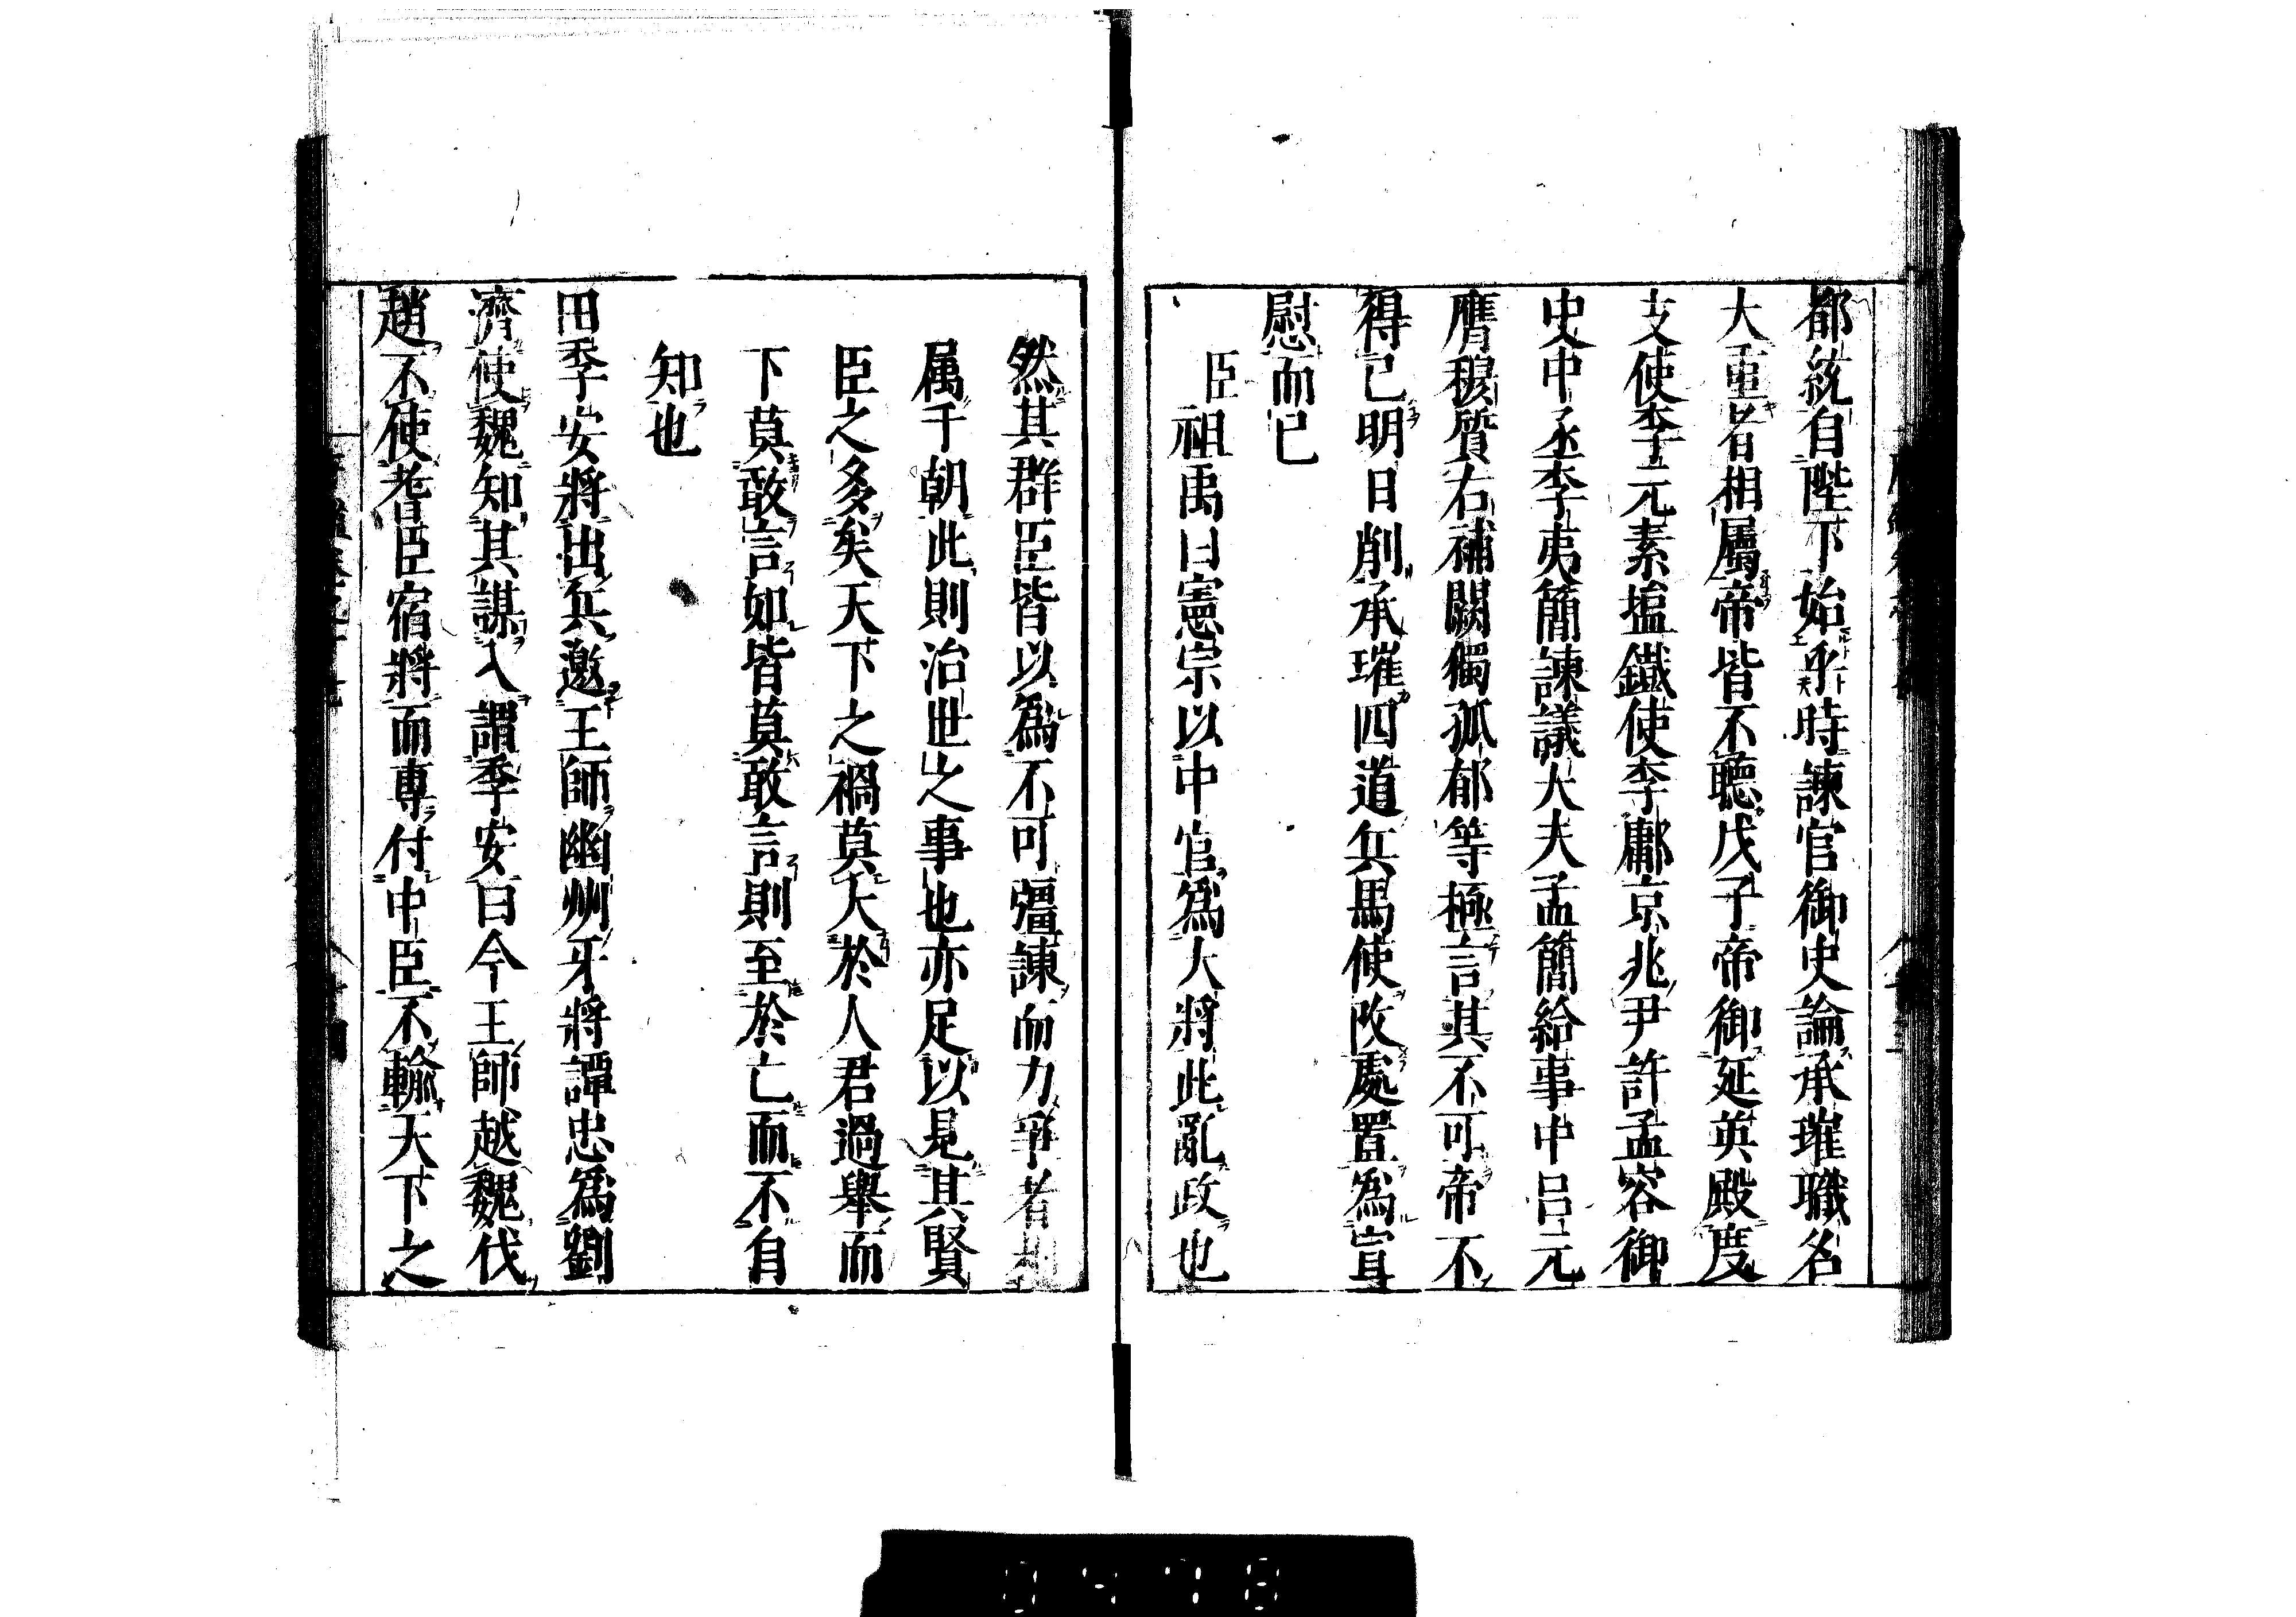 都統自陛下始乎時諫官御史論承璀職名
大重者相屬帝皆不聽戊子帝御延英殿度
支使李元素塩鐵使李鄘京兆尹許孟容御
史中丞李夷簡諫議大夫孟簡給事中呂元
膺穆質右補闕獨孤郁等極言其不可帝不
得已明日削承璀四道兵馬使改處置爲宣
慰而已
臣祖禹曰憲宗以中官爲大將此亂政也
然其群臣皆以爲不可彊諫而力爭者相
属于朝此則治世之事也亦足以見其賢
臣之多矣天下之禍莫大於人君過舉而
下莫敢言如皆莫敢言則至於亡而不自
知也
田季安將出兵邀王師幽州牙將譚忠爲劉
濟使魏知其謀入謂季安曰今王師越魏伐
趙不使耆臣宿將而專付中臣不輸天下之
0478